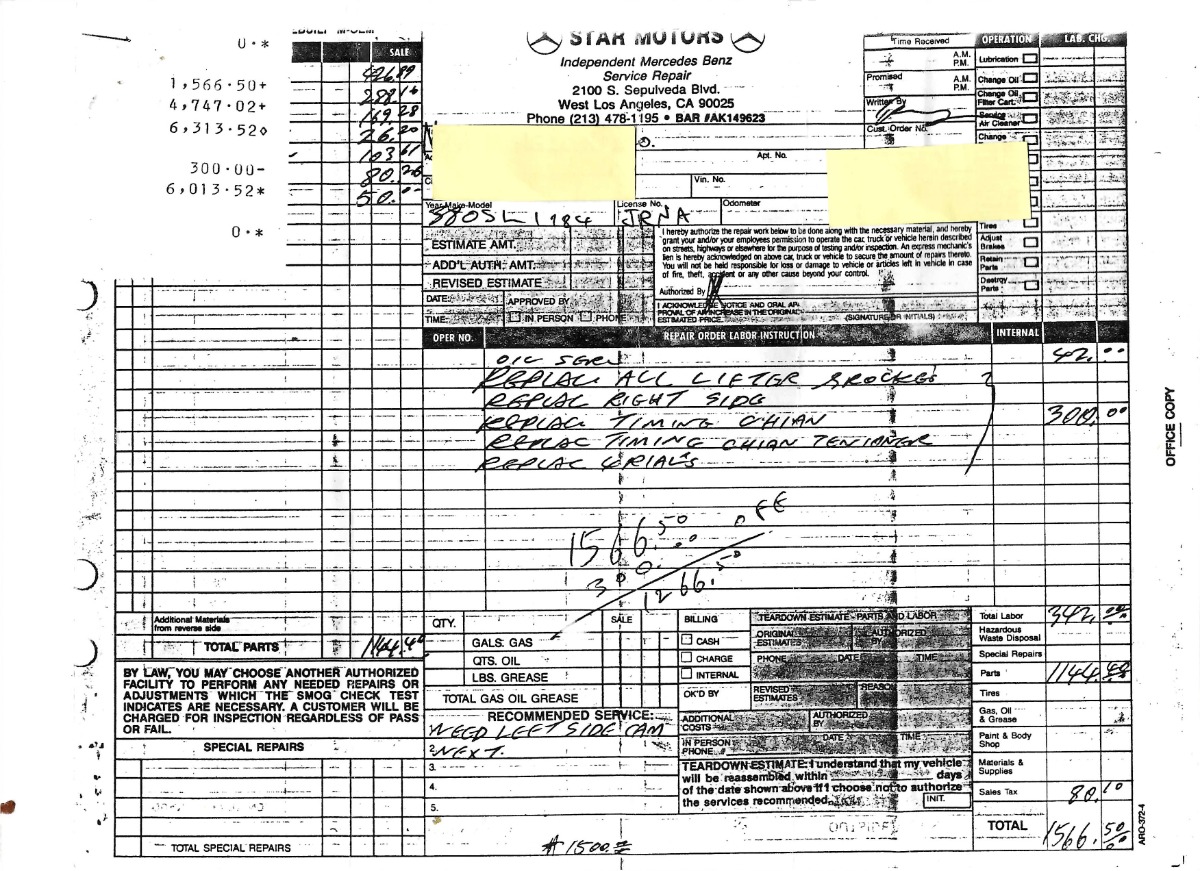 0.*
1,566.50+
4,747.02+
6,313.52◊
300.00-
6,013.52*
0.*
SALE
426.89
288.16
169.28
26.20
103.61
80.26
50.00
STAR MOTORS
Independent Mercedes Benz
Service Repair
2100 S. Sepulveda Blvd.
West Los Angeles, CA 90025
Phone (213) 478-1195 • BAR #AK149623
Apt. No.
Vin. No.
Year-Make-Model
License No.
Odometer
380SL 1984
JRNA
ESTIMATE AMT.
ADD'L AUTH. AMT.
REVISED ESTIMATE
DATE:
APPROVED BY
TIME:
IN PERSON
PHONE
I hereby authorize the repair work below to be done along with the necessary material, and hereby
grant your and/or your employees permission to operate the car, truck or vehicle herein described
on streets, highways or elsewhere for the purpose of testing and/or inspection. An express mechanic's
lien is hereby acknowledged on above car, truck or vehicle to secure the amount of repairs thereto.
You will not be held responsible for loss or damage to vehicle or articles left in vehicle in case
of fire, theft, accident or any other cause beyond your control.
Authorized By
I ACKNOWLEDGE NOTICE AND ORAL AP-
PROVAL OF AN INCREASE IN THE ORIGINAL
ESTIMATED PRICE.
(SIGNATURE OR INITIALS)
Time Received
A.M.
P.M.
Promised
A.M.
P.M.
Written By
Cust. Order No.
OPERATION
LAB. CHG.
Lubrication
Change Oil
Change Oil
Filter Cart.
Service
Air Cleaner
Change
Tires
Adjust
Brakes
Retain
Parts
Destroy
Parts
OPER NO.
REPAIR ORDER LABOR INSTRUCTION
INTERNAL
OIL SERV
42.00
REPLAC ALL LIFTER &ROCKES
REPLAC RIGHT SIDE
REPLAC TIMING CHIAN
300.00
REPLAC TIMING CHIAN TENIONER
REPLAC 4 RIALS
1566.50
300.00
1266.50
OFFICE COPY
Additional Materials
from reverse side
TOTAL PARTS
1144.40
BY LAW, YOU MAY CHOOSE ANOTHER AUTHORIZED
FACILITY TO PERFORM ANY NEEDED REPAIRS OR
ADJUSTMENTS WHICH THE SMOG CHECK TEST
INDICATES ARE NECESSARY. A CUSTOMER WILL BE
CHARGED FOR INSPECTION REGARDLESS OF PASS
OR FAIL.
SPECIAL REPAIRS
TOTAL SPECIAL REPAIRS
QTY.
SALE
GALS. GAS
QTS. OIL
LBS. GREASE
TOTAL GAS OIL GREASE
RECOMMENDED SERVICE:
NEED LEFT SIDE CAM
2. NEXT.
3.
4.
5.
# 1500.00
BILLING
CASH
CHARGE
INTERNAL
OK'D BY
TEARDOWN ESTIMATE - PARTS AND LABOR
ORIGINAL
ESTIMATES
AUTHORIZED
BY
PHONE
DATE
TIME
REVISED
ESTIMATES
REASON
ADDITIONAL
COSTS
AUTHORIZED
BY
IN PERSON
PHONE #
DATE
TIME
TEARDOWN ESTIMATE: I understand that my vehicle
will be reassembled within days
of the date shown above if I choose not to authorize
the services recommended.
INIT.
Total Labor
342.00
Hazardous
Waste Disposal
Special Repairs
Parts
1144.40
Tires
Gas, Oil
& Grease
Paint & Body
Shop
Materials &
Supplies
Sales Tax
80.10
TOTAL
1566.50
ARO-372-4